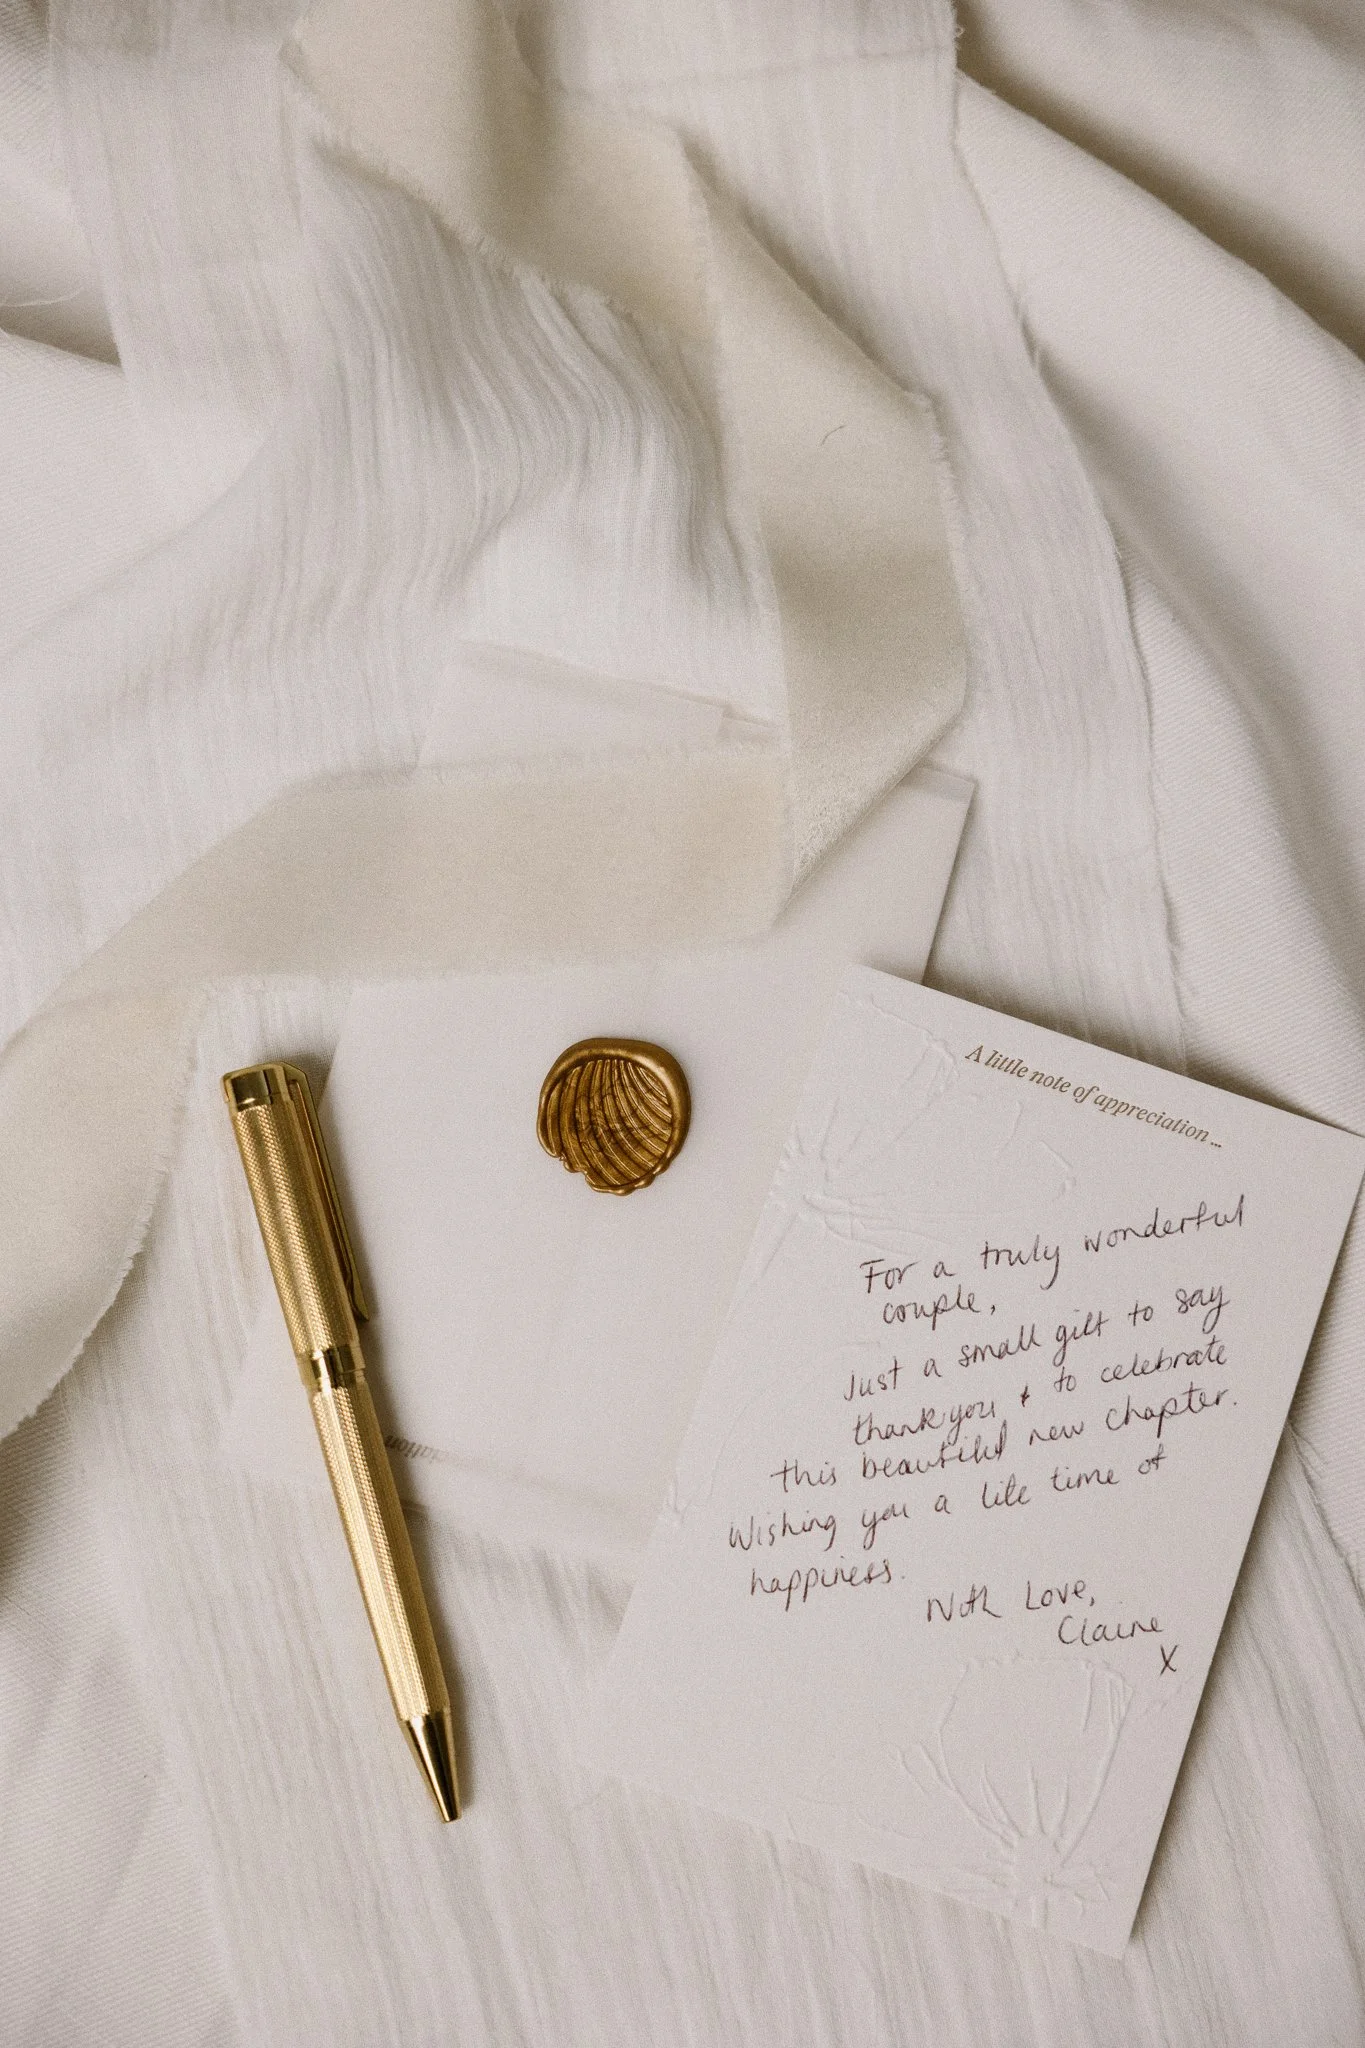 A little note of appreciation...
For a truly wonderful
couple,
Just a small gift to say
thankyou & to celebrate
this beautiful new chapter.
Wishing you a life time of
happiness.
With Love,
Claire
X